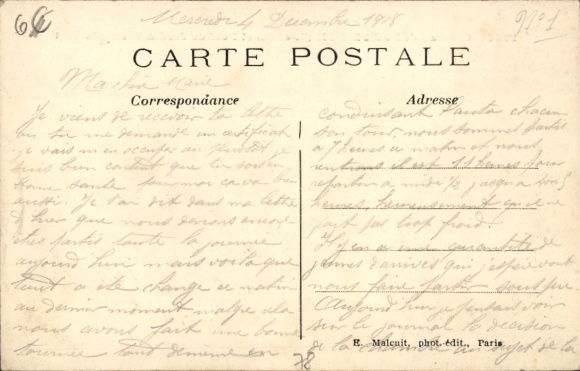 Mercredi 4 Decembre 1918
No 1
CARTE POSTALE
Ma chère Marie
Correspondance
Adresse
Je viens de recevoir ta lettre
ou tu me demande un certificat
je vais m'en occuper au plutôt je
suis bien content que tu sois en
bonne santé pour moi ca va bien
aussi. Je t'ai dit dans ma lettre
d'hier que nous devions encore
êtres partis toute la journée
aujourd'hui mais voila que
tout a été changé ce matin
au dernier moment malgré cela
nous avons fait une bonne
tournée tout de meme en
conduisant l'auto chacun
son tour, nous sommes partis
a 7 heures ce matin et nous
rentrions il est 11 heures pour
repartir a midi ½ jusqu'a
heures, heureusement qu'il ne
fait pas trop froid.
Il y en a une quantité de
jeunes d'arrivés qui j'espère vont
nous faire partir sous peu
Aujourd'hui je pensais voir
sur le journal la décision
de la chambre au sujet de la
E. Malcuit, phot. édit., Paris
78